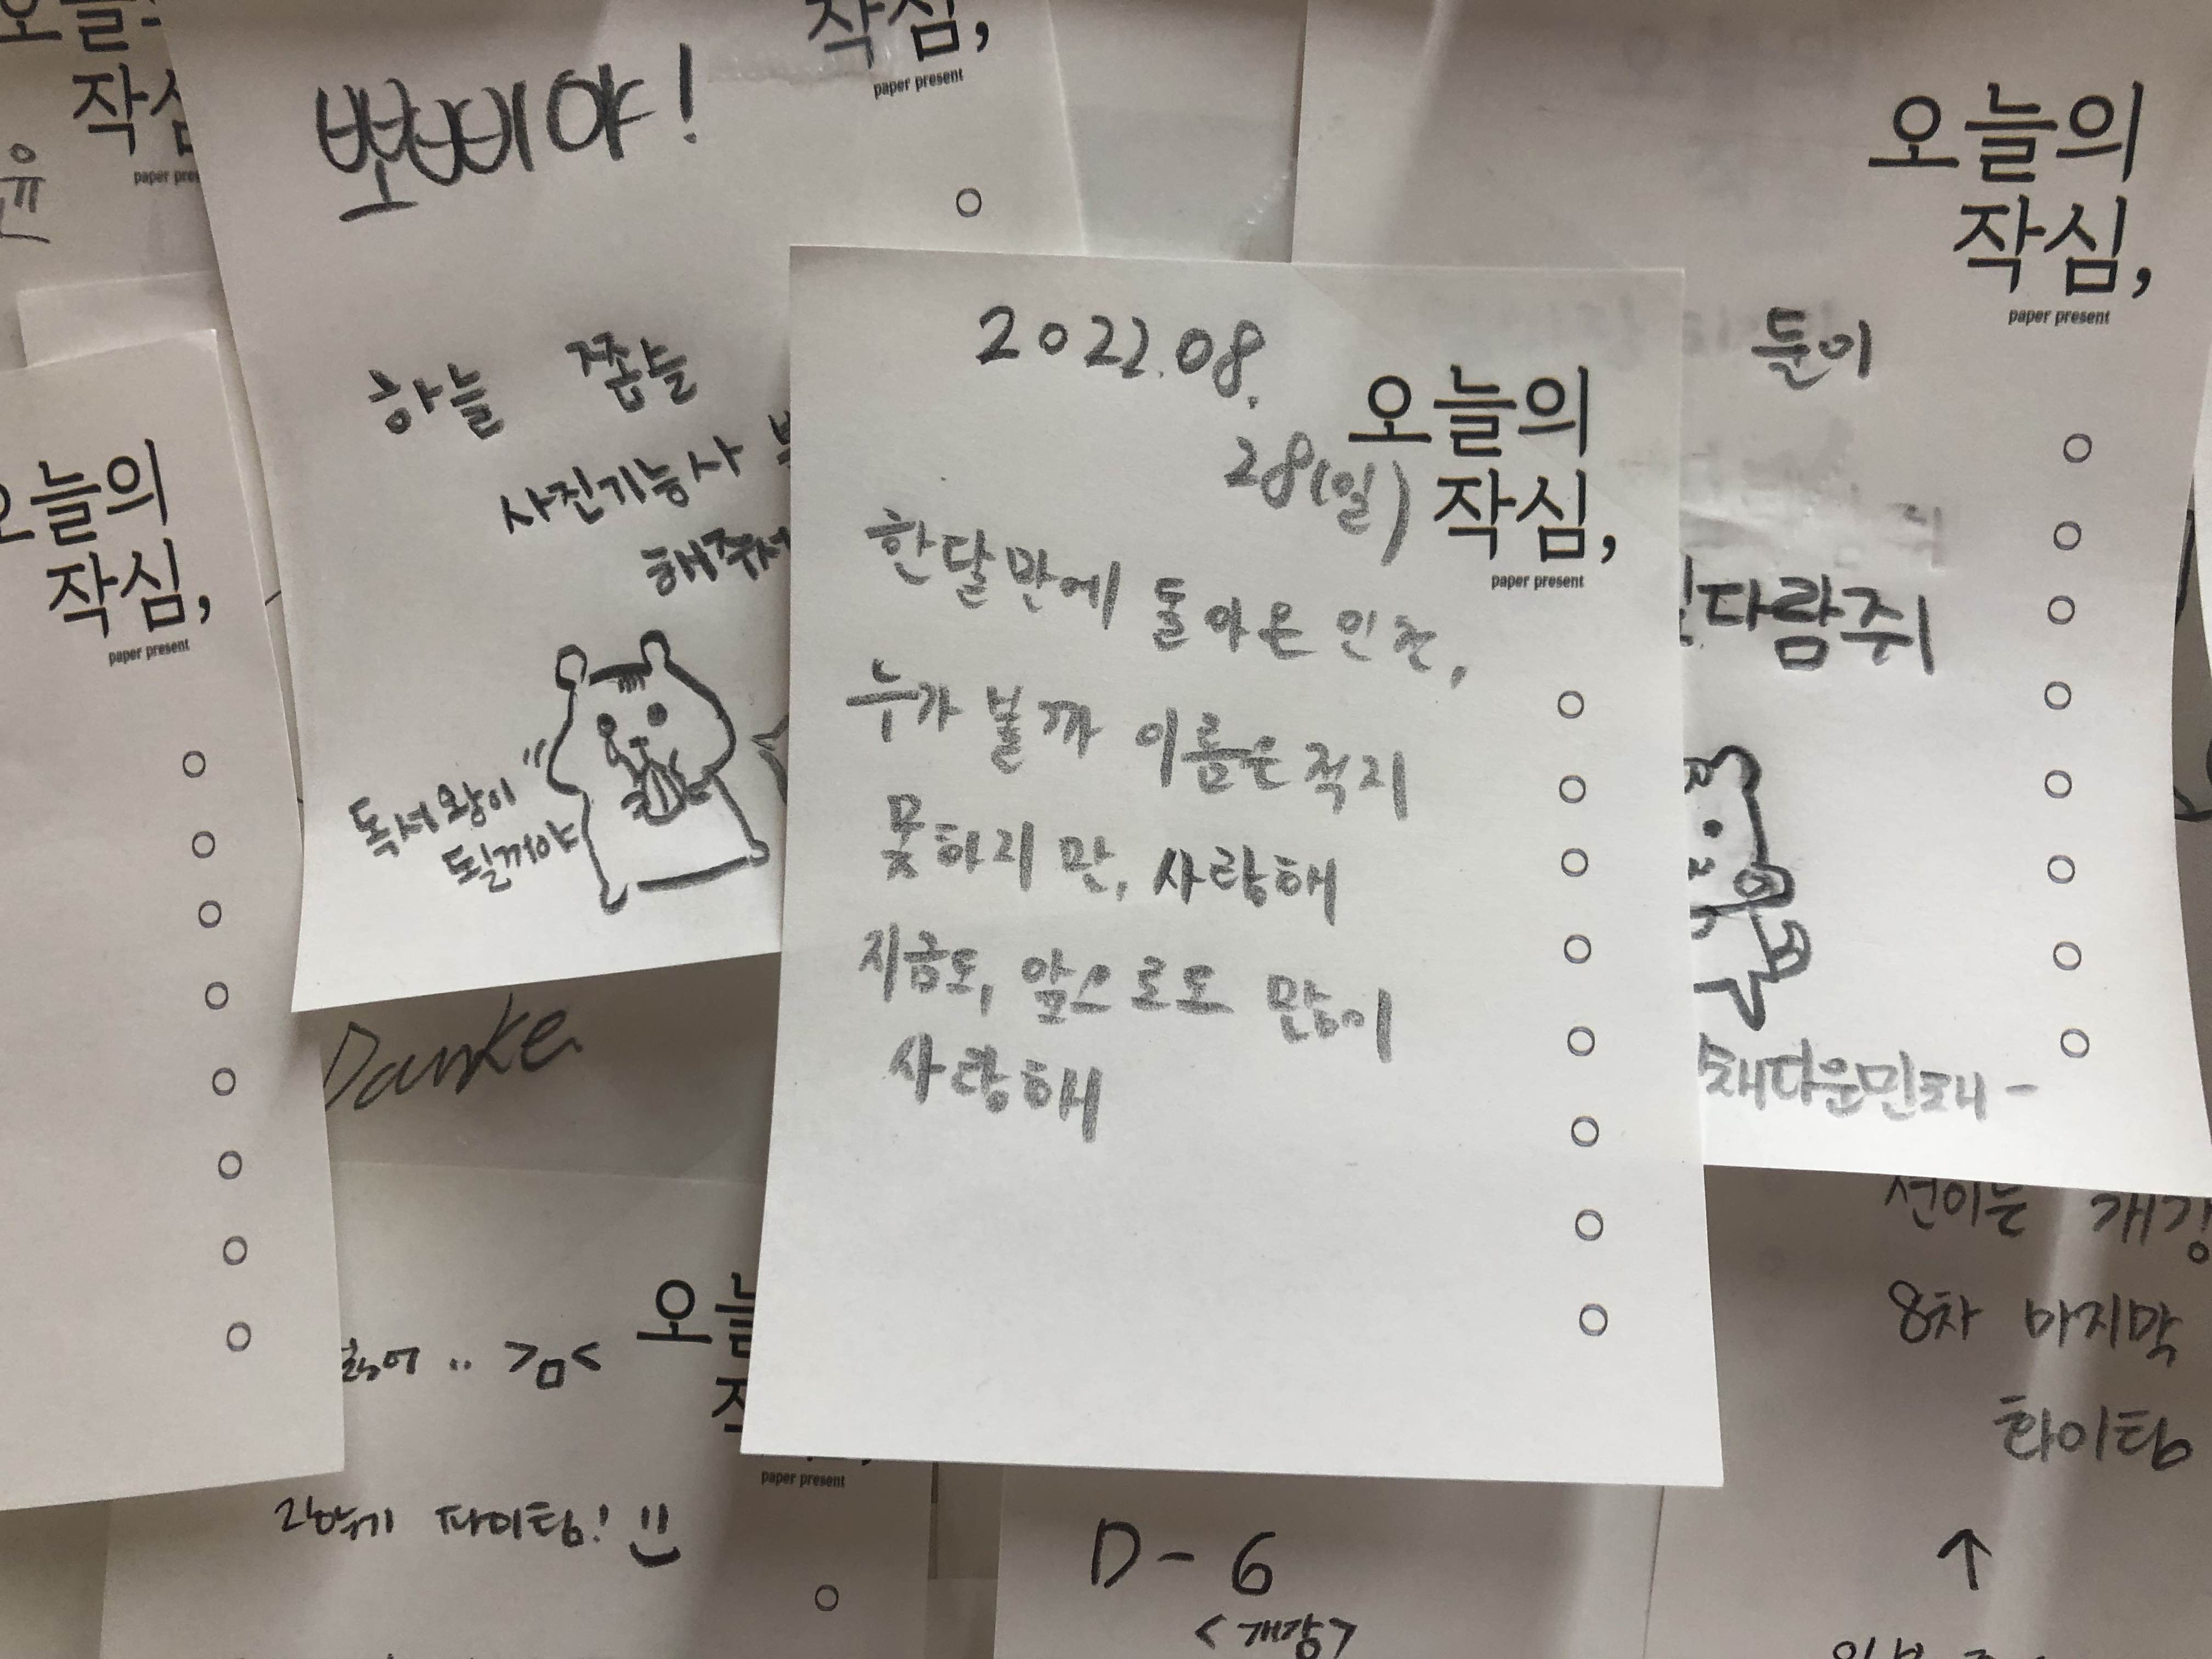 오늘
작
paper
윤
작심,
paper present
뽀삐야!
하늘 쫌늘
사진기능사
해줘서
독서왕이
될꺼야
오늘의
작심,
paper present
2022.08.
28(일)
오늘의
작심,
paper present
한달만에 돌아온 인천,
누가 볼까 이름은 적지
못하지만, 사랑해
지금도, 앞으로도 많이
사랑해
오늘의
작심,
paper present
둔이
다람쥐
채다운민채-
Danke
오늘
paper present
2학기 파이팅!
D-6
<개강>
선이는 개강
8차 마지막
화이팅